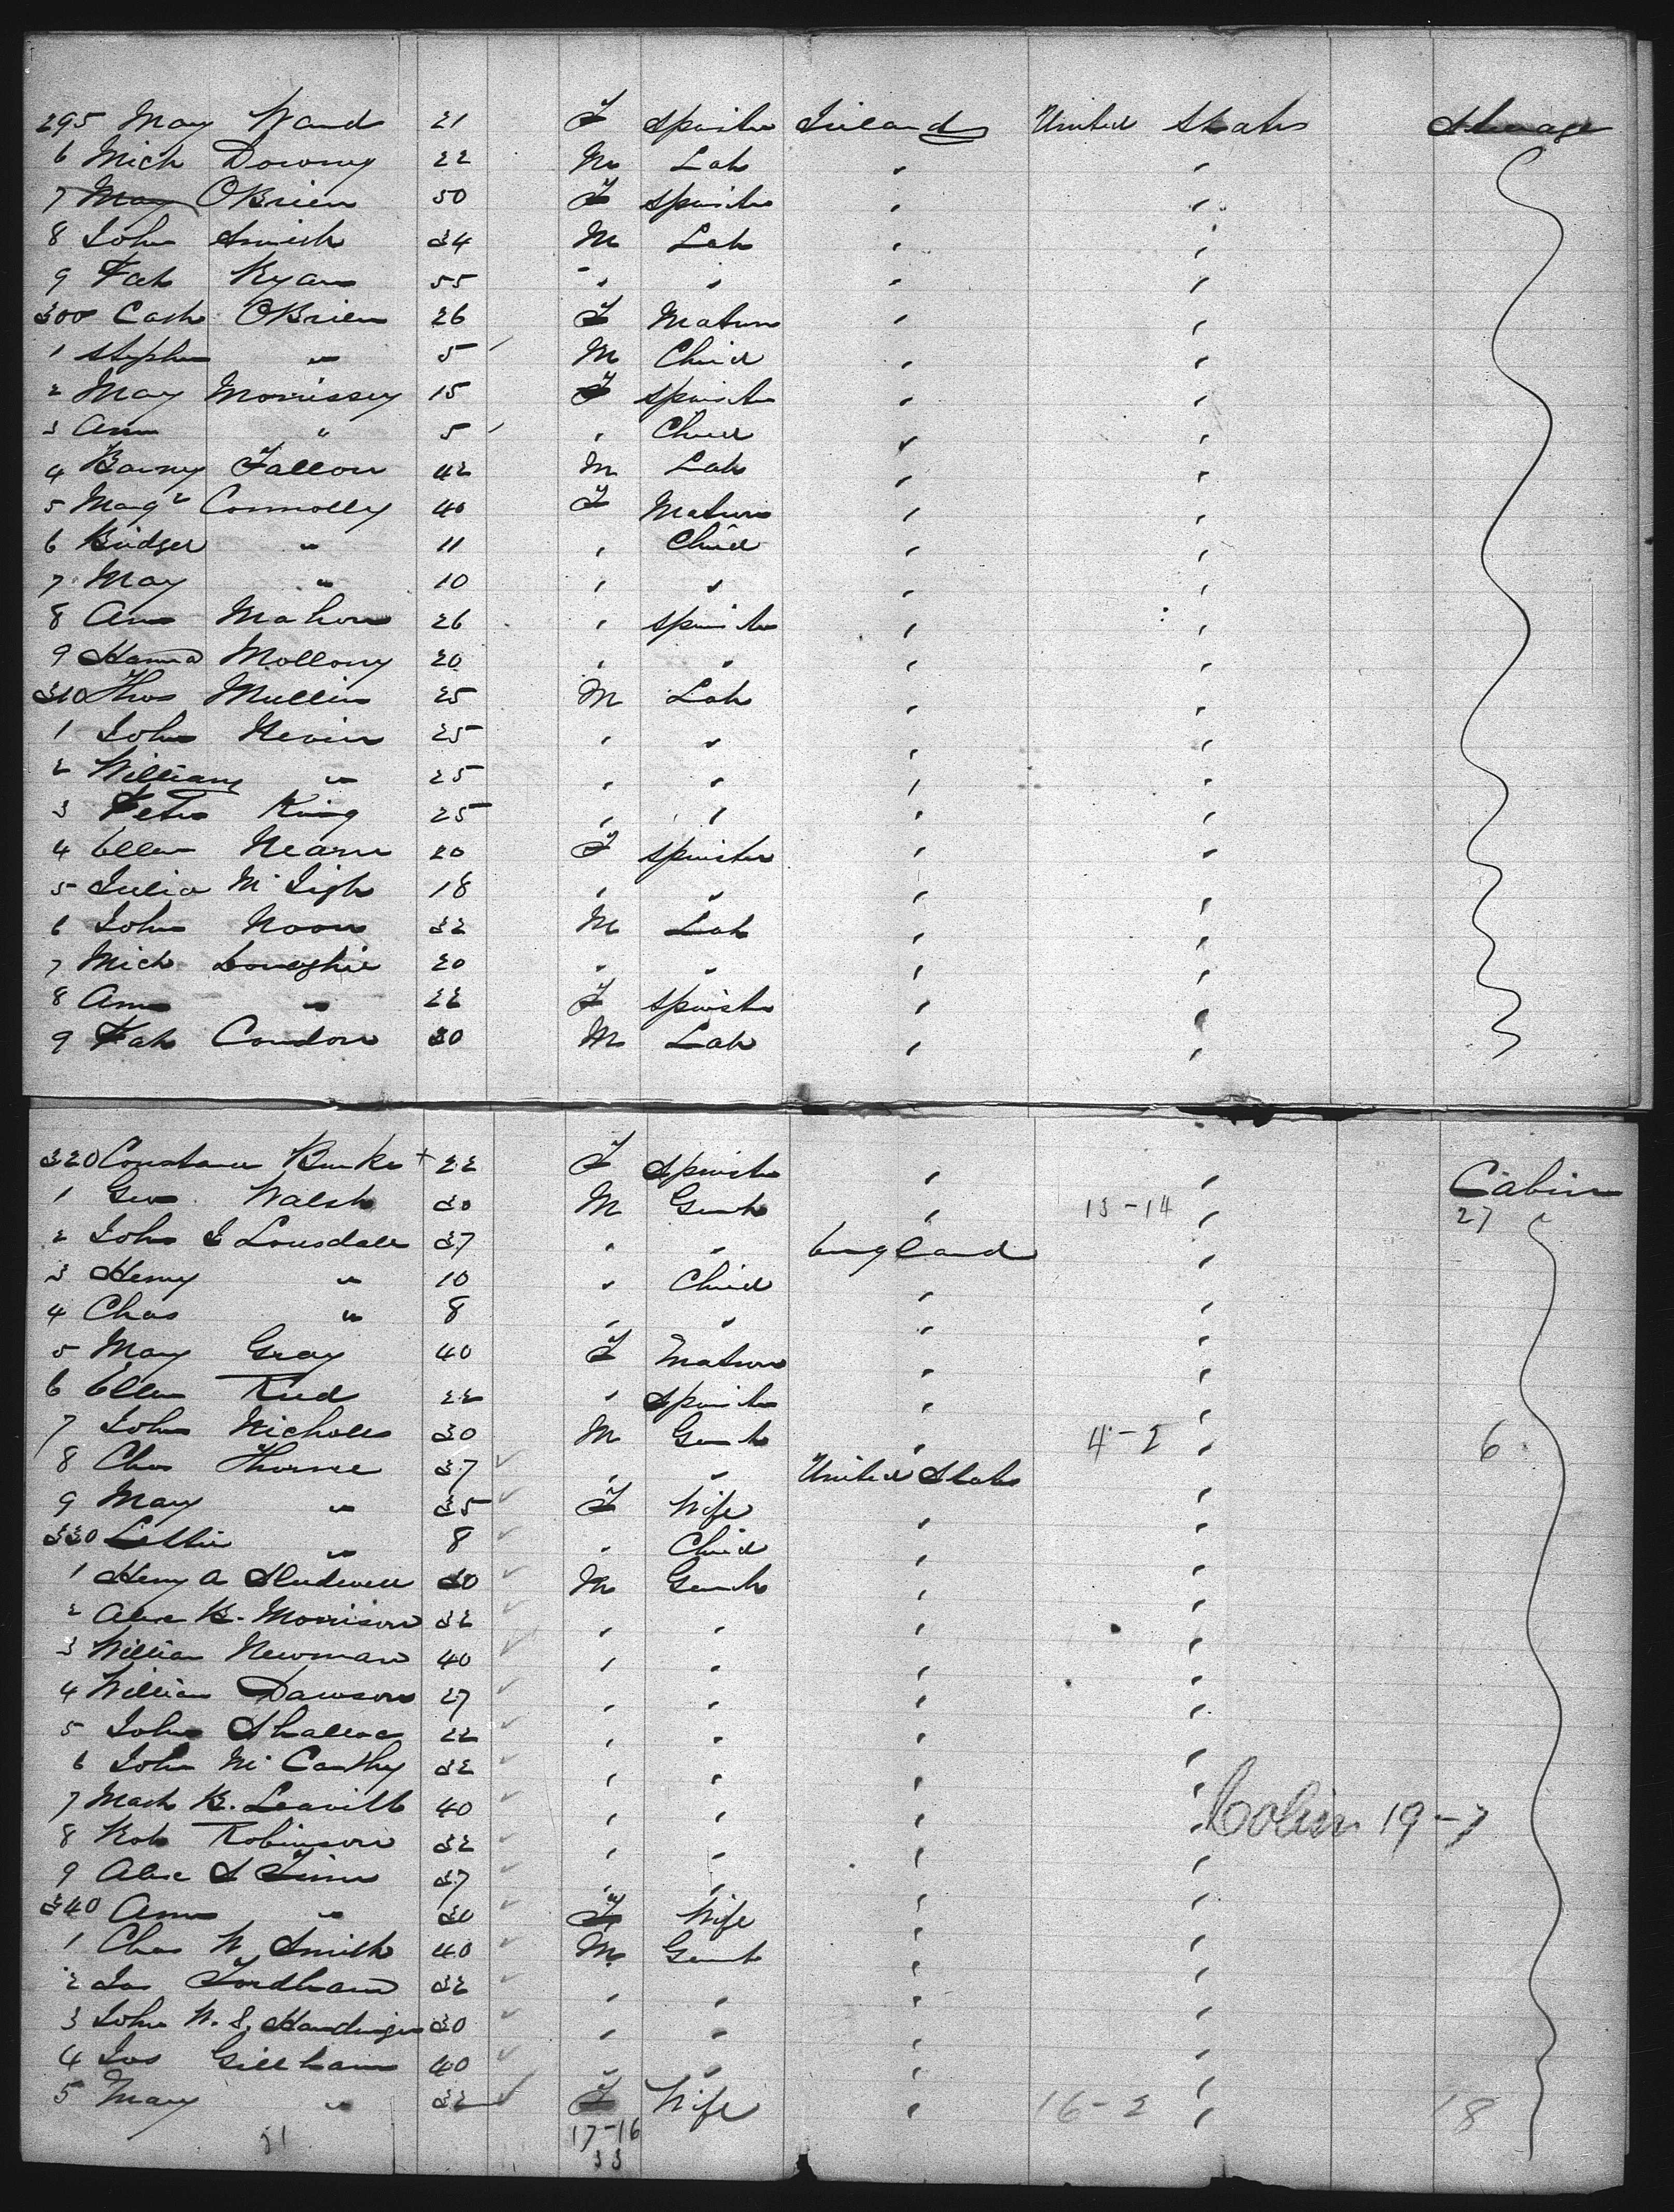 295 Mary Ward 21 F Spinster Ireland United States Steerage
6 Mich Downey 22 M Lab " "
7 Mary OBrien 50 F Spinster " "
8 John Smith 34 M Lab " "
9 Pat Ryan 55 " " " "
300 Cath OBrien 26 F Matron " "
1 Stephen " 5 M Child " "
2 Mary Morrissey 15 F Spinster " "
3 Ann " 5 " Child " "
4 Barney Fallon 42 M Lab " "
5 Margt Connolly 40 F Matron " "
6 Bridget " 11 " Child " "
7 Mary " 10 " " " "
8 Ann Mahon 26 " Spinster " "
9 Hanna Mollony 20 " " " "
310 Thos Mullin 25 M Lab " "
1 John Nevin 25 " " " "
2 William " 25 " " " "
3 Peter King 25 " " " "
4 Ellen 20 F Spinster " "
5 Julia 18 " " " "
6 John Noon 32 M Lab " "
7 Mich Donoghie 20 " " " "
8 Ann " 22 F Spinster " "
9 Pat Condon 30 M Lab " "
320 Constance Burke + 22 F Spinster " " Cabin
1 Geo Walsh 30 M Gent " 13-14 " 27
2 John J Lonsdale 37 " " England "
3 Henry " 10 " Child " "
4 Chas " 8 " " " "
5 Mary Gray 40 F Matron " "
6 Ellen Reed 22 " Spinster " "
7 John Nicholls 30 M Gent " 4-2 " 6
8 Chas Thorne 37 " " United States "
9 Mary " 35 F Wife " "
330 Lillie " 8 " Child " "
1 Henry A 30 M Gent " "
2 Alex B. Morrison 32 " " " "
3 William Newman 40 " " " "
4 William Dawson 27 " " " "
5 John 22 " " " "
6 John McCarthy 32 " " " "
7 Mark B. Leavitt 40 " " " " Cabin 19-7
8 Rob Robinson 32 " " " "
9 Alex S 37 " " " "
340 Ann " 30 F Wife " "
1 Chas W Smith 40 M Gent " "
2 Jas Fordham 32 " " " "
3 John W. S. 30 " " " "
4 Jos Gillham 40 " " " "
5 Mary " 32 F Wife " 16-2 " 18
51 17-16
33